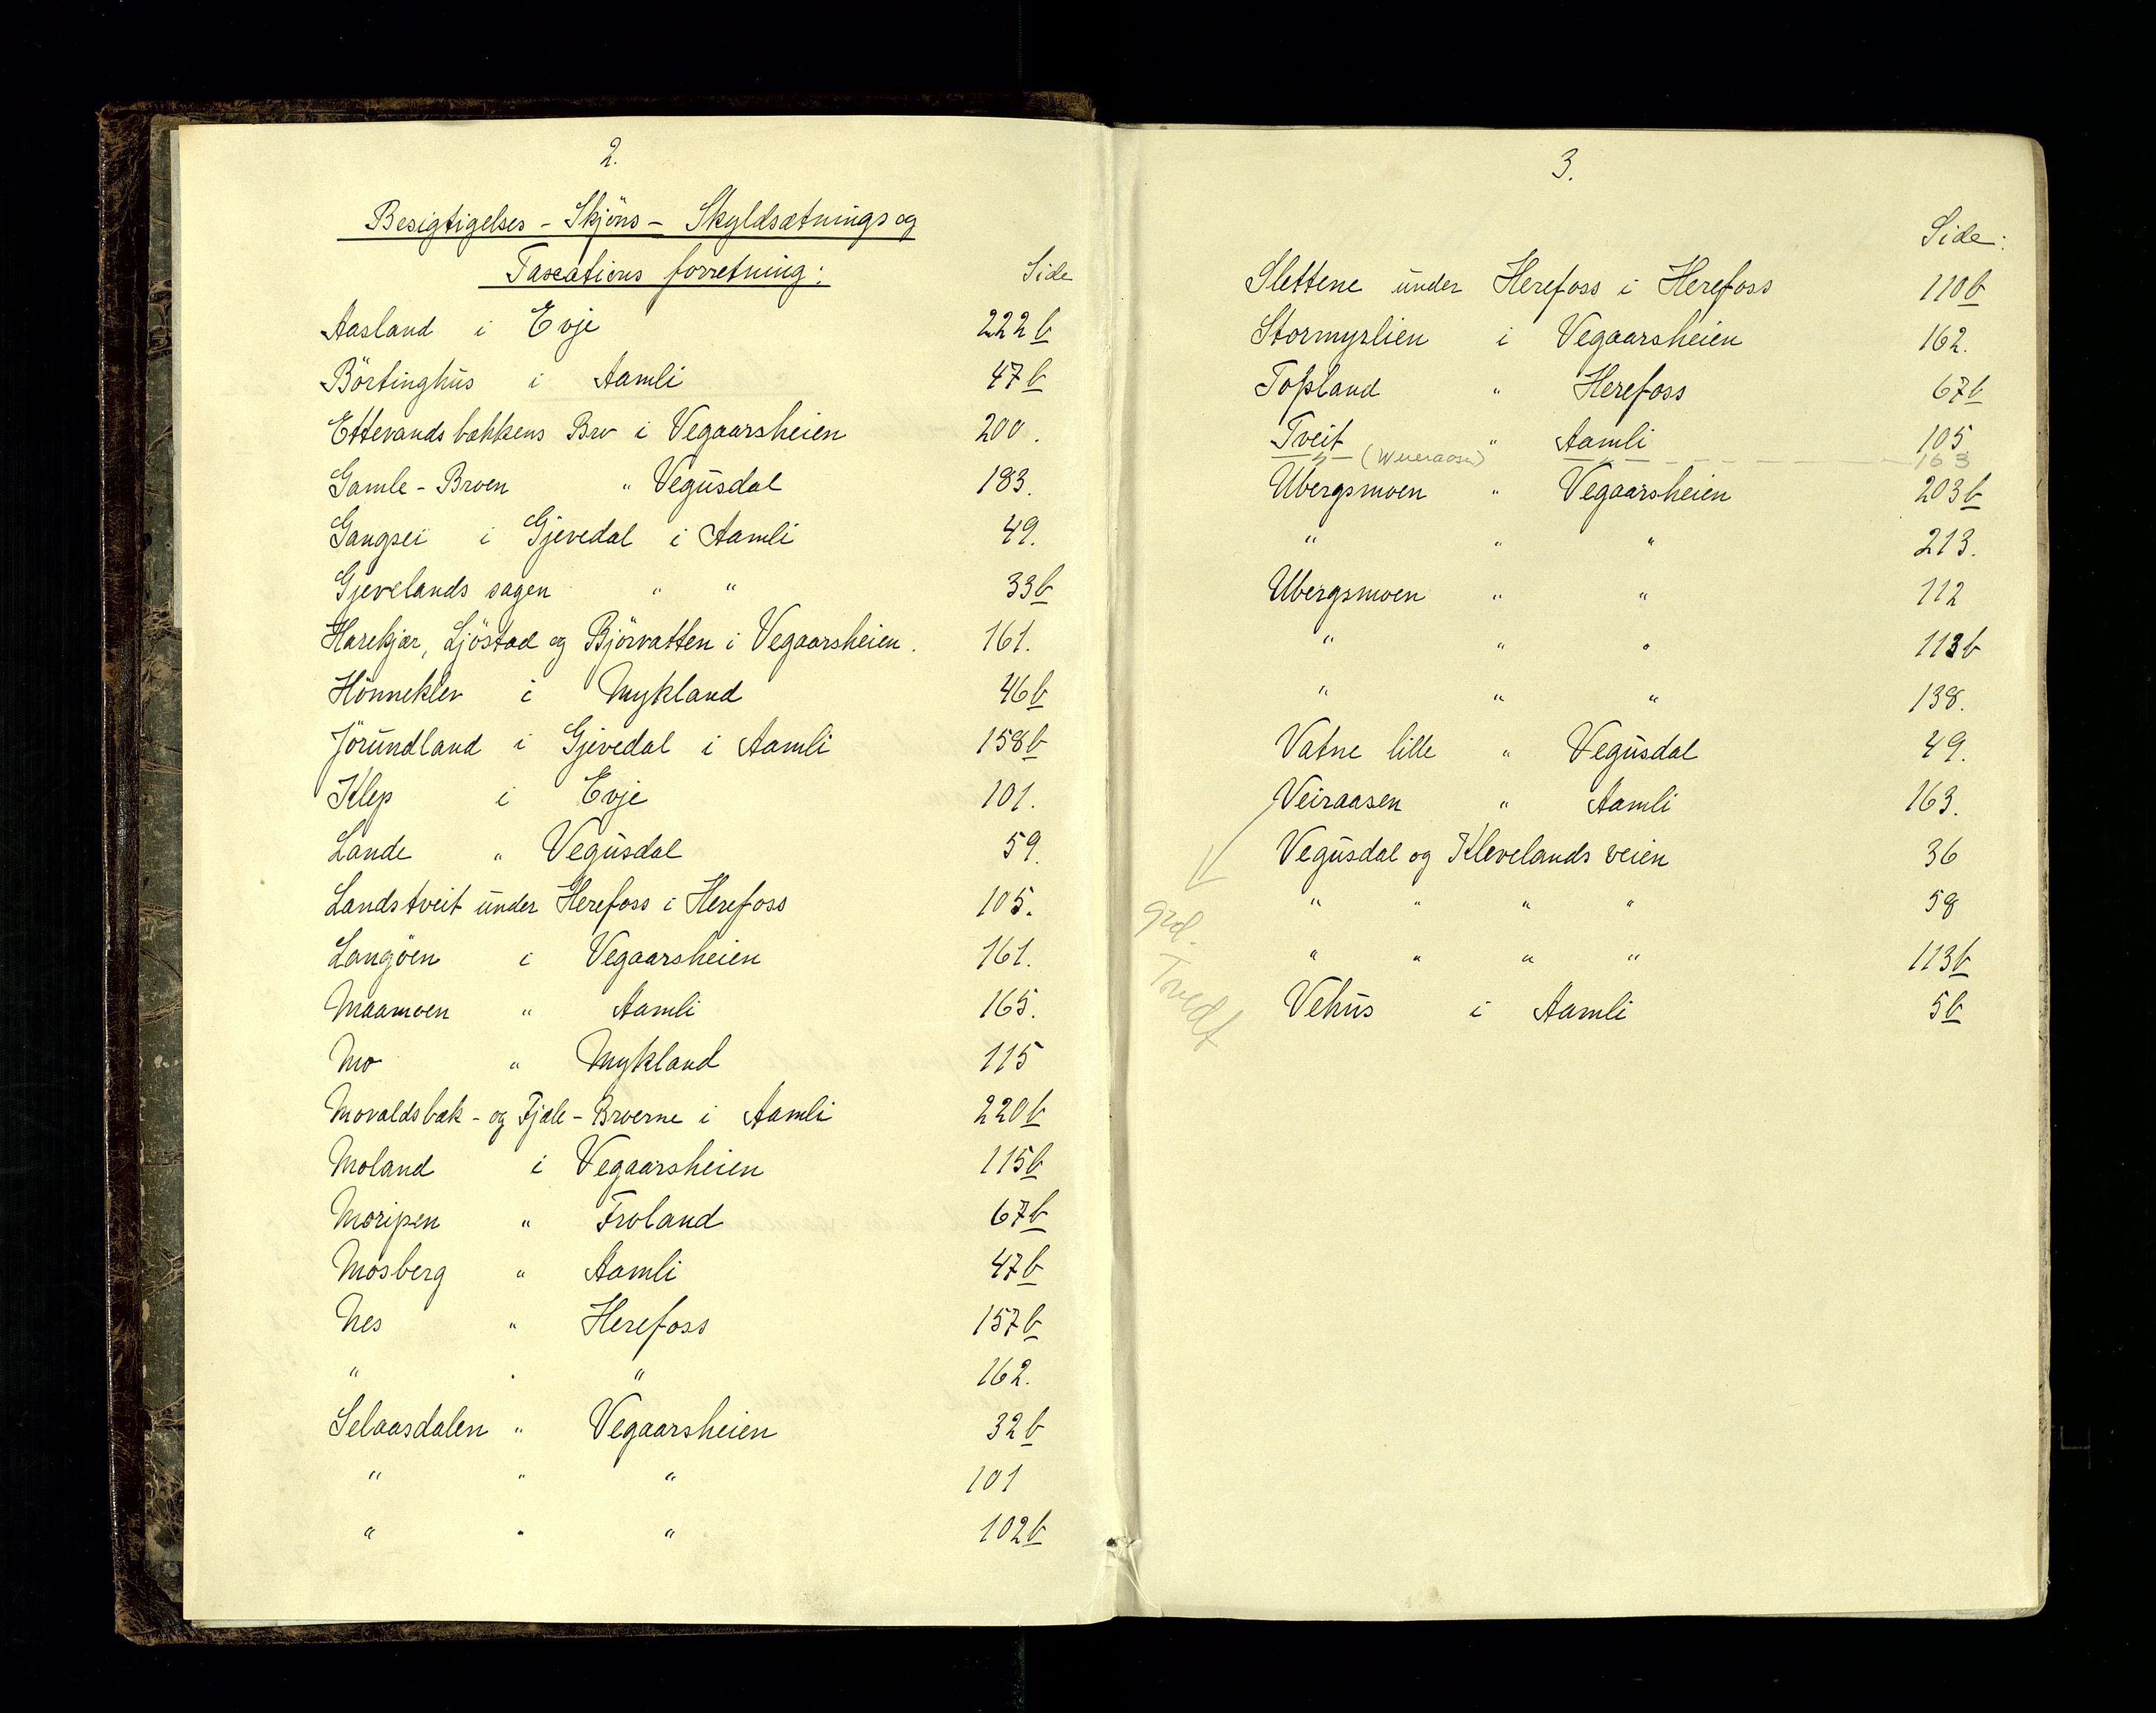 2.
Besigtigelses - Skjöns - Skyldsætnings og
Taxations forretning:
Side
Aasland i Evje 222 b
Börtinghus i Aamli 47 b
Ettevandsbækkens Bro i Vegaarsheien 200.
Gamle - Broen " Vegusdal 183.
Gangsei i Gjevedal i Aamli 49.
Gjevelands sagen " " 33 b
Harekjær, Ljöstad og Björvatten i Vegaarsheien. 161.
Hönneklev i Mykland 46 b
Jörundland i Gjevedal i Aamli 158 b
Klep i Evje 101.
Lande " Vegusdal 59.
Landstveit under Herefoss i Herefoss 105.
Langöen i Vegaarsheien 161.
Maamoen " Aamli 165.
Mo " Mykland 115
Movaldsbæk - og Fjale - Broerne i Aamli 220 b
Moland i Vegaarsheien 115 b
Moripen " Froland 67 b
Mosberg " Aamli 47 b
Nes " Herefoss 157 b
" " " 162.
Selaasdalen " Vegaarsheien 32 b
" " " 101
" " " 102 b
3.
Side:
Slettene under Herefoss i Herefoss 110 b
Stormyrlien i Vegaarsheien 162.
Topland " Herefoss 67 b
Tveit " Aamli 105
— " — — " — 163
Ubergsmoen " Vegaarsheien 203 b
" " " 213.
Ubergsmoen " " 112
" " " 113 b
" " " 138.
Vatne lille " Vegusdal 49.
Veiraasen " Aamli 163.
Vegusdal og Klevelands veien 36
" " " " 58
" " " " 113 b
Vehus i Aamli 5 b
grd.
Tvedt